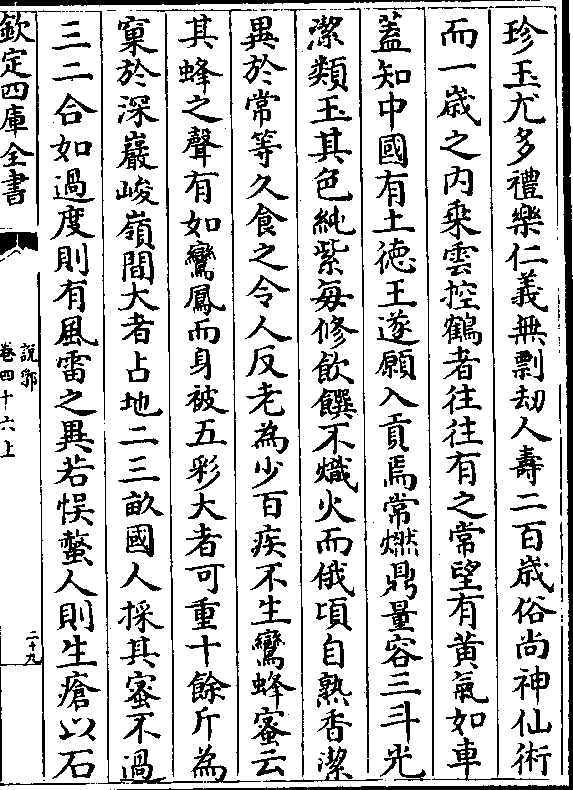 珍玉尤多禮樂仁義無剽刼人壽二百歲俗尚神仙術
而一歲之内乘雲控鶴者往往有之常望有黄氣如車
蓋知中國有土徳王遂願入貢焉常燃鼎量容三斗光
潔類玉其色純紫每修飲饌不熾火而俄頃自熟香潔
異於常等久食之令人反老為少百疾不生鸞蜂蜜云
其蜂之聲有如鸞鳳而身被五彩大者可重十餘斤為
窠於深巖峻嶺間大者占地二三畝國人採其蜜不過
三二合如過度則有風雷之異若悞螫人則生瘡以石
欽定四庫全書
說郛
卷四十六上
二十九